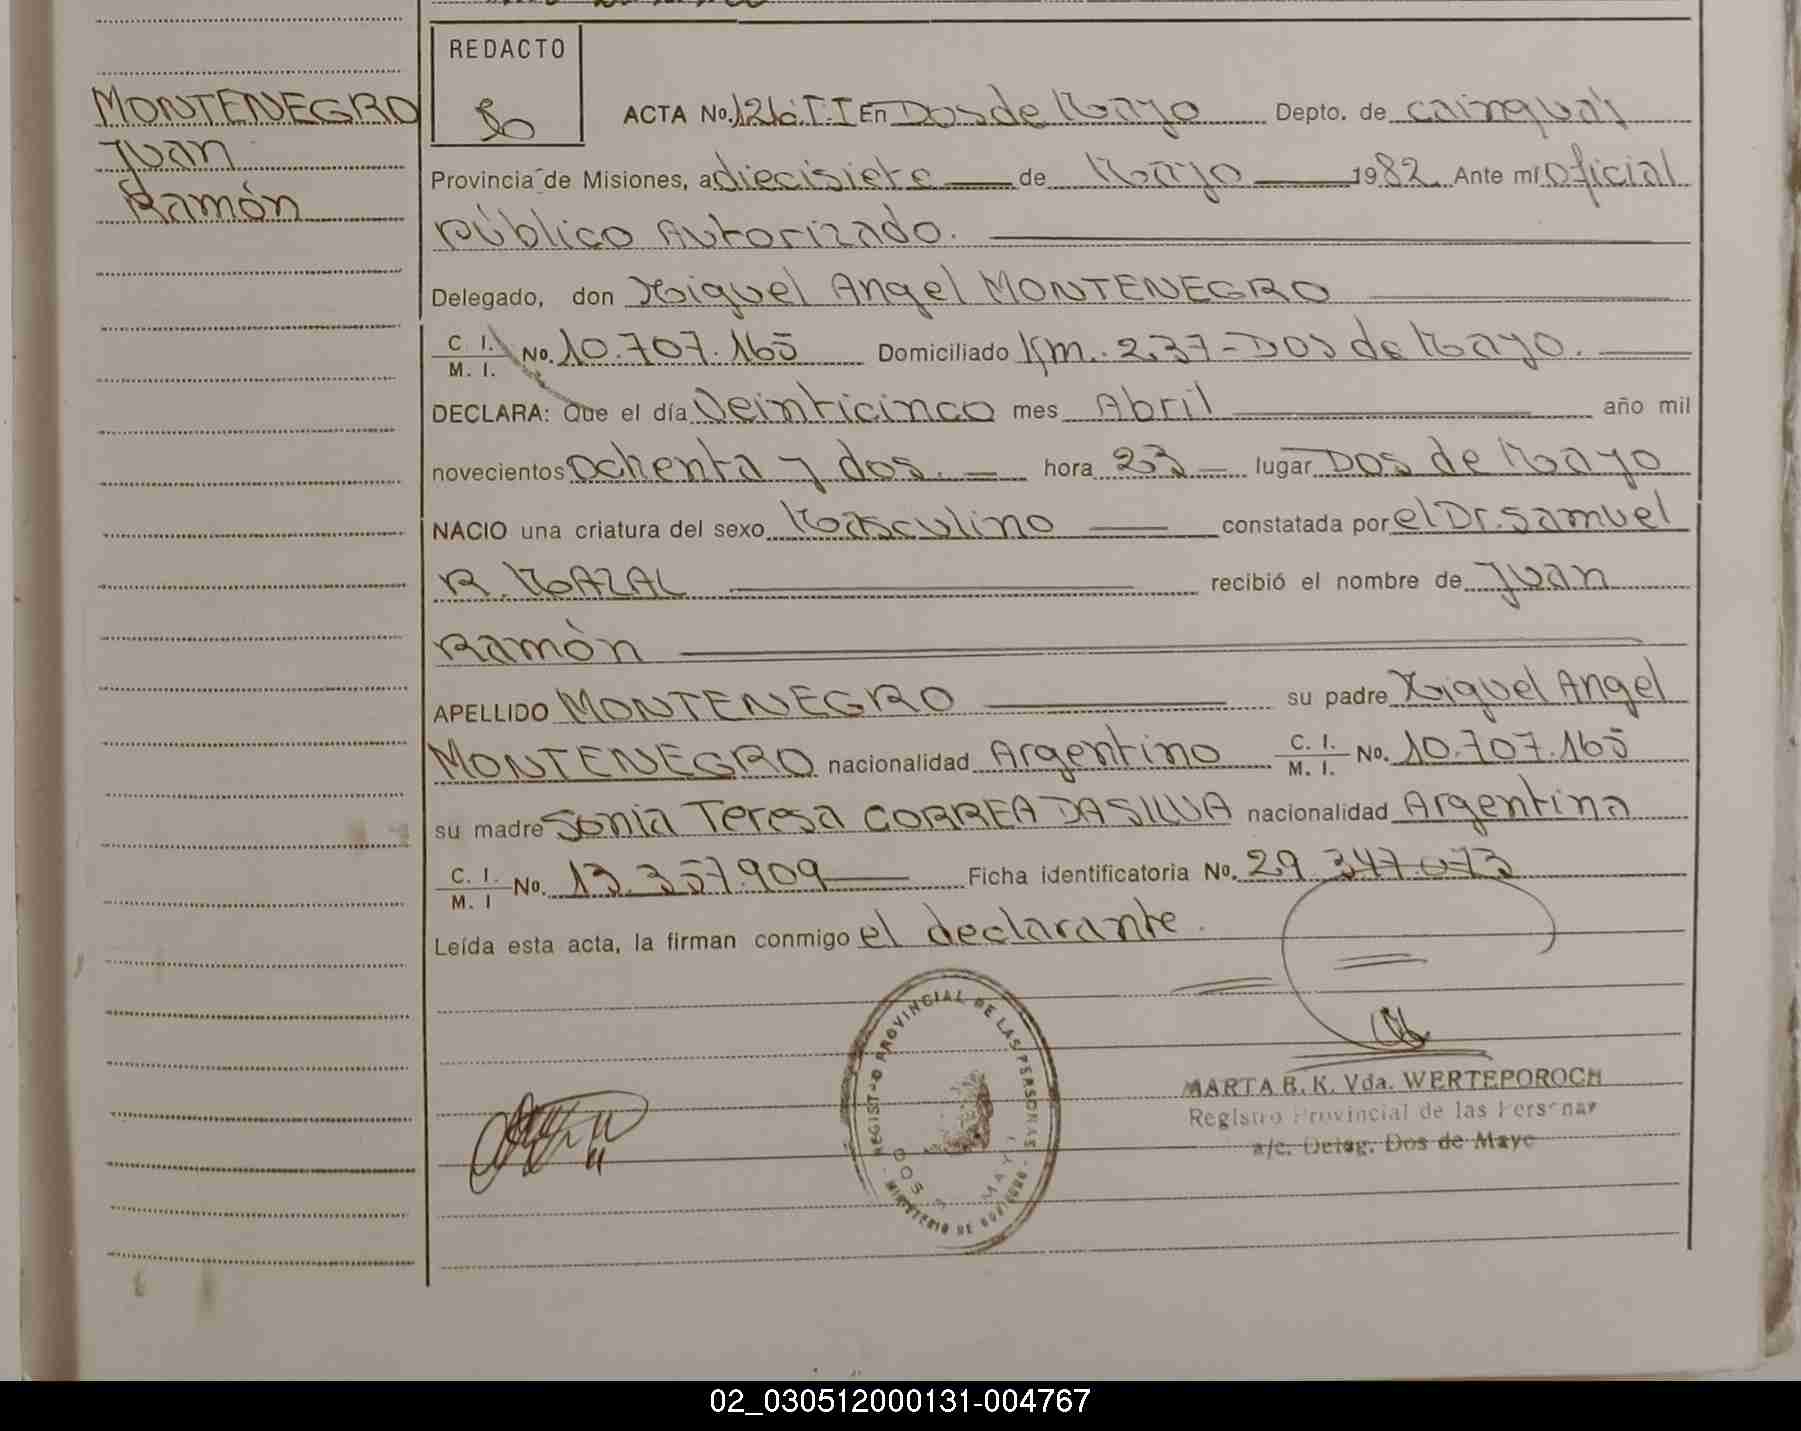 MONTENEGRO
Juan
Ramón
REDACTO
ACTA No. 126 T. I En Dos de Mayo Depto. de Cainguás
Provincia de Misiones, a diecisiete de Mayo 1982. Ante mí Oficial
Público Autorizado.
Delegado, don Miguel Angel MONTENEGRO
C. I. M. I. No. 10.707.165 Domiciliado Km. 237 - Dos de Mayo.
DECLARA: Que el día Veinticinco mes Abril año mil
novecientos ochenta y dos. hora 23 lugar Dos de Mayo
NACIO una criatura del sexo Masculino constatada por el Dr. Samuel
R. MAZAL recibió el nombre de Juan
Ramón
APELLIDO MONTENEGRO su padre Miguel Angel
MONTENEGRO nacionalidad Argentino C. I. M. I. No. 10.707.165
su madre Sonia Teresa CORREA DASILVA nacionalidad Argentina
C. I. M. I No. 13.357.909 Ficha identificatoria No. 29.347.073
Leída esta acta, la firman conmigo el declarante.
REGISTRO PROVINCIAL DE LAS PERSONAS
MINISTERIO DE GOBIERNO
MARTA B. K. Vda. WERTEPOROCH
Registro Provincial de las Personas
a/c. Deleg. Dos de Mayo
02_030512000131-004767